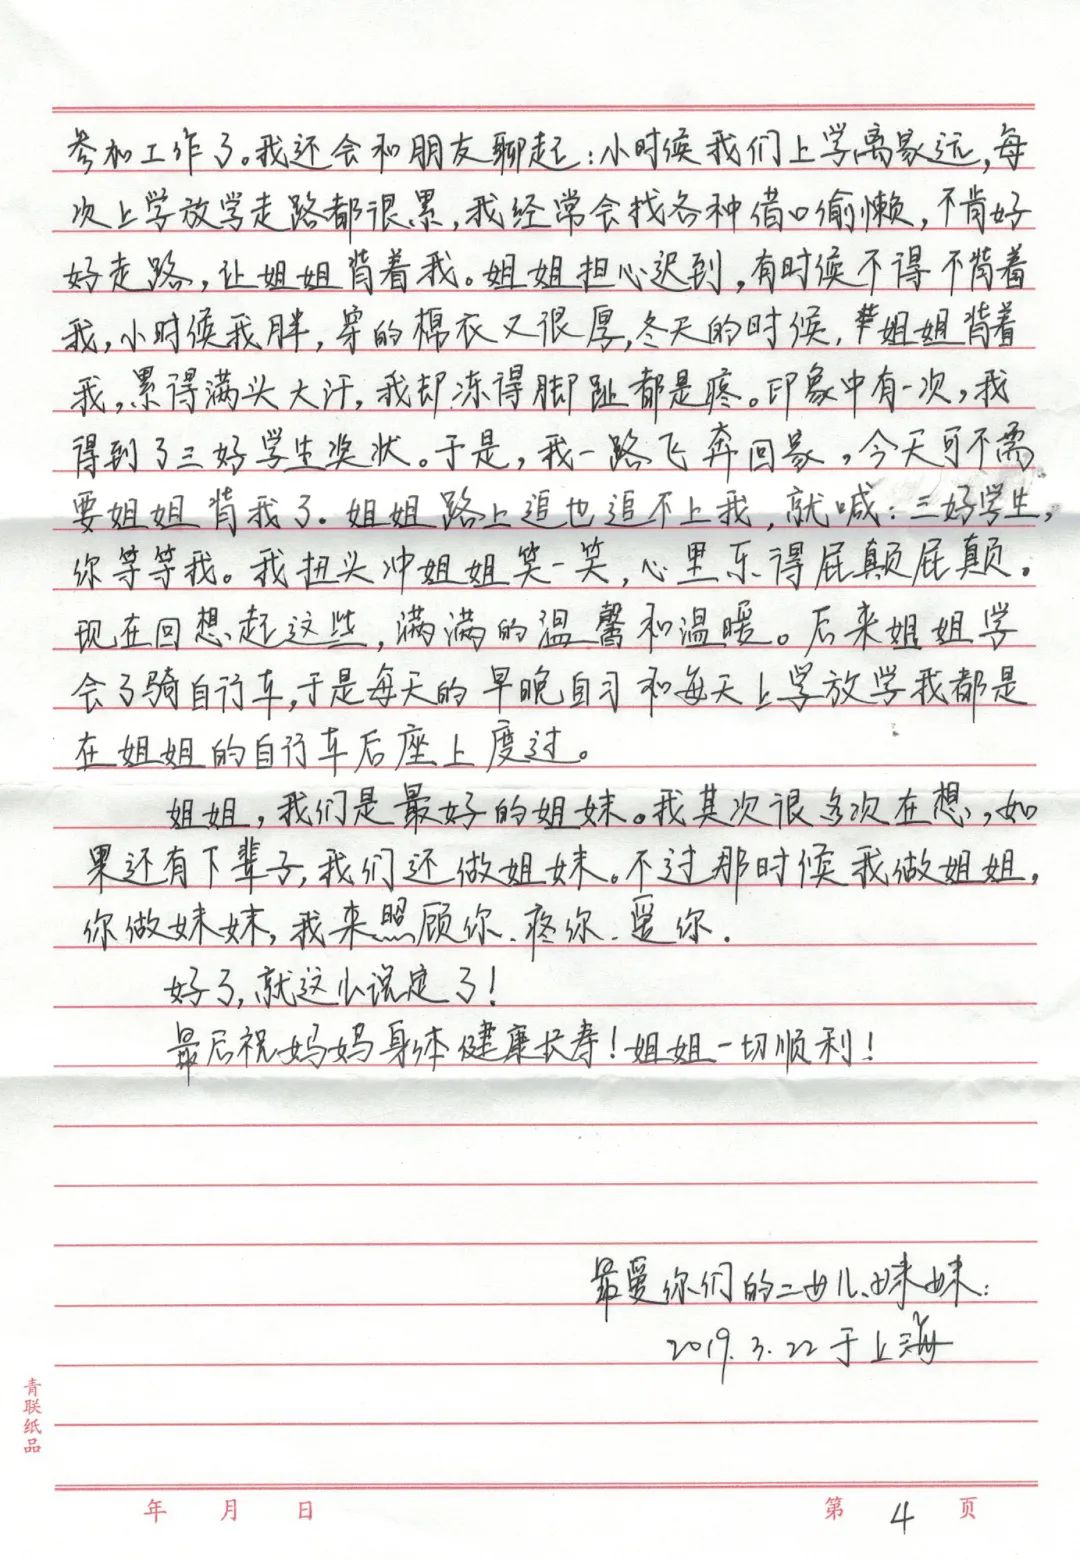 参加工作了。我还会和朋友聊起：小时候我们上学离家远，每
次上学放学走路都很累，我经常会找各种借口偷懒，不肯好
好走路，让姐姐背着我。姐姐担心迟到，有时候不得不背着
我，小时候我胖，穿的棉衣又很厚，冬天的时候，姐姐背着
我，累得满头大汗，我却冻得脚趾都是疼。印象中有一次，我
得到了三好学生奖状。于是，我一路飞奔回家，今天可不需
要姐姐背我了。姐姐路上追也追不上我，就喊：三好学生，
你等等我。我扭头冲姐姐笑一笑，心里乐得屁颠屁颠。
现在回想起这些，满满的温馨和温暖。后来姐姐学
会了骑自行车，于是每天的早晚自习和每天上学放学我都是
在姐姐的自行车后座上度过。
姐姐，我们是最好的姐妹。我其次很多次在想，如
果还有下辈子，我们还做姐妹。不过那时候我做姐姐，
你做妹妹，我来照顾你.疼你.爱你.
好了，就这么说定了！
最后祝妈妈身体健康长寿！姐姐一切顺利！
最爱你们的二女儿、妹妹：
2019.3.22于上海
青联纸品
年 月 日 第 4 页